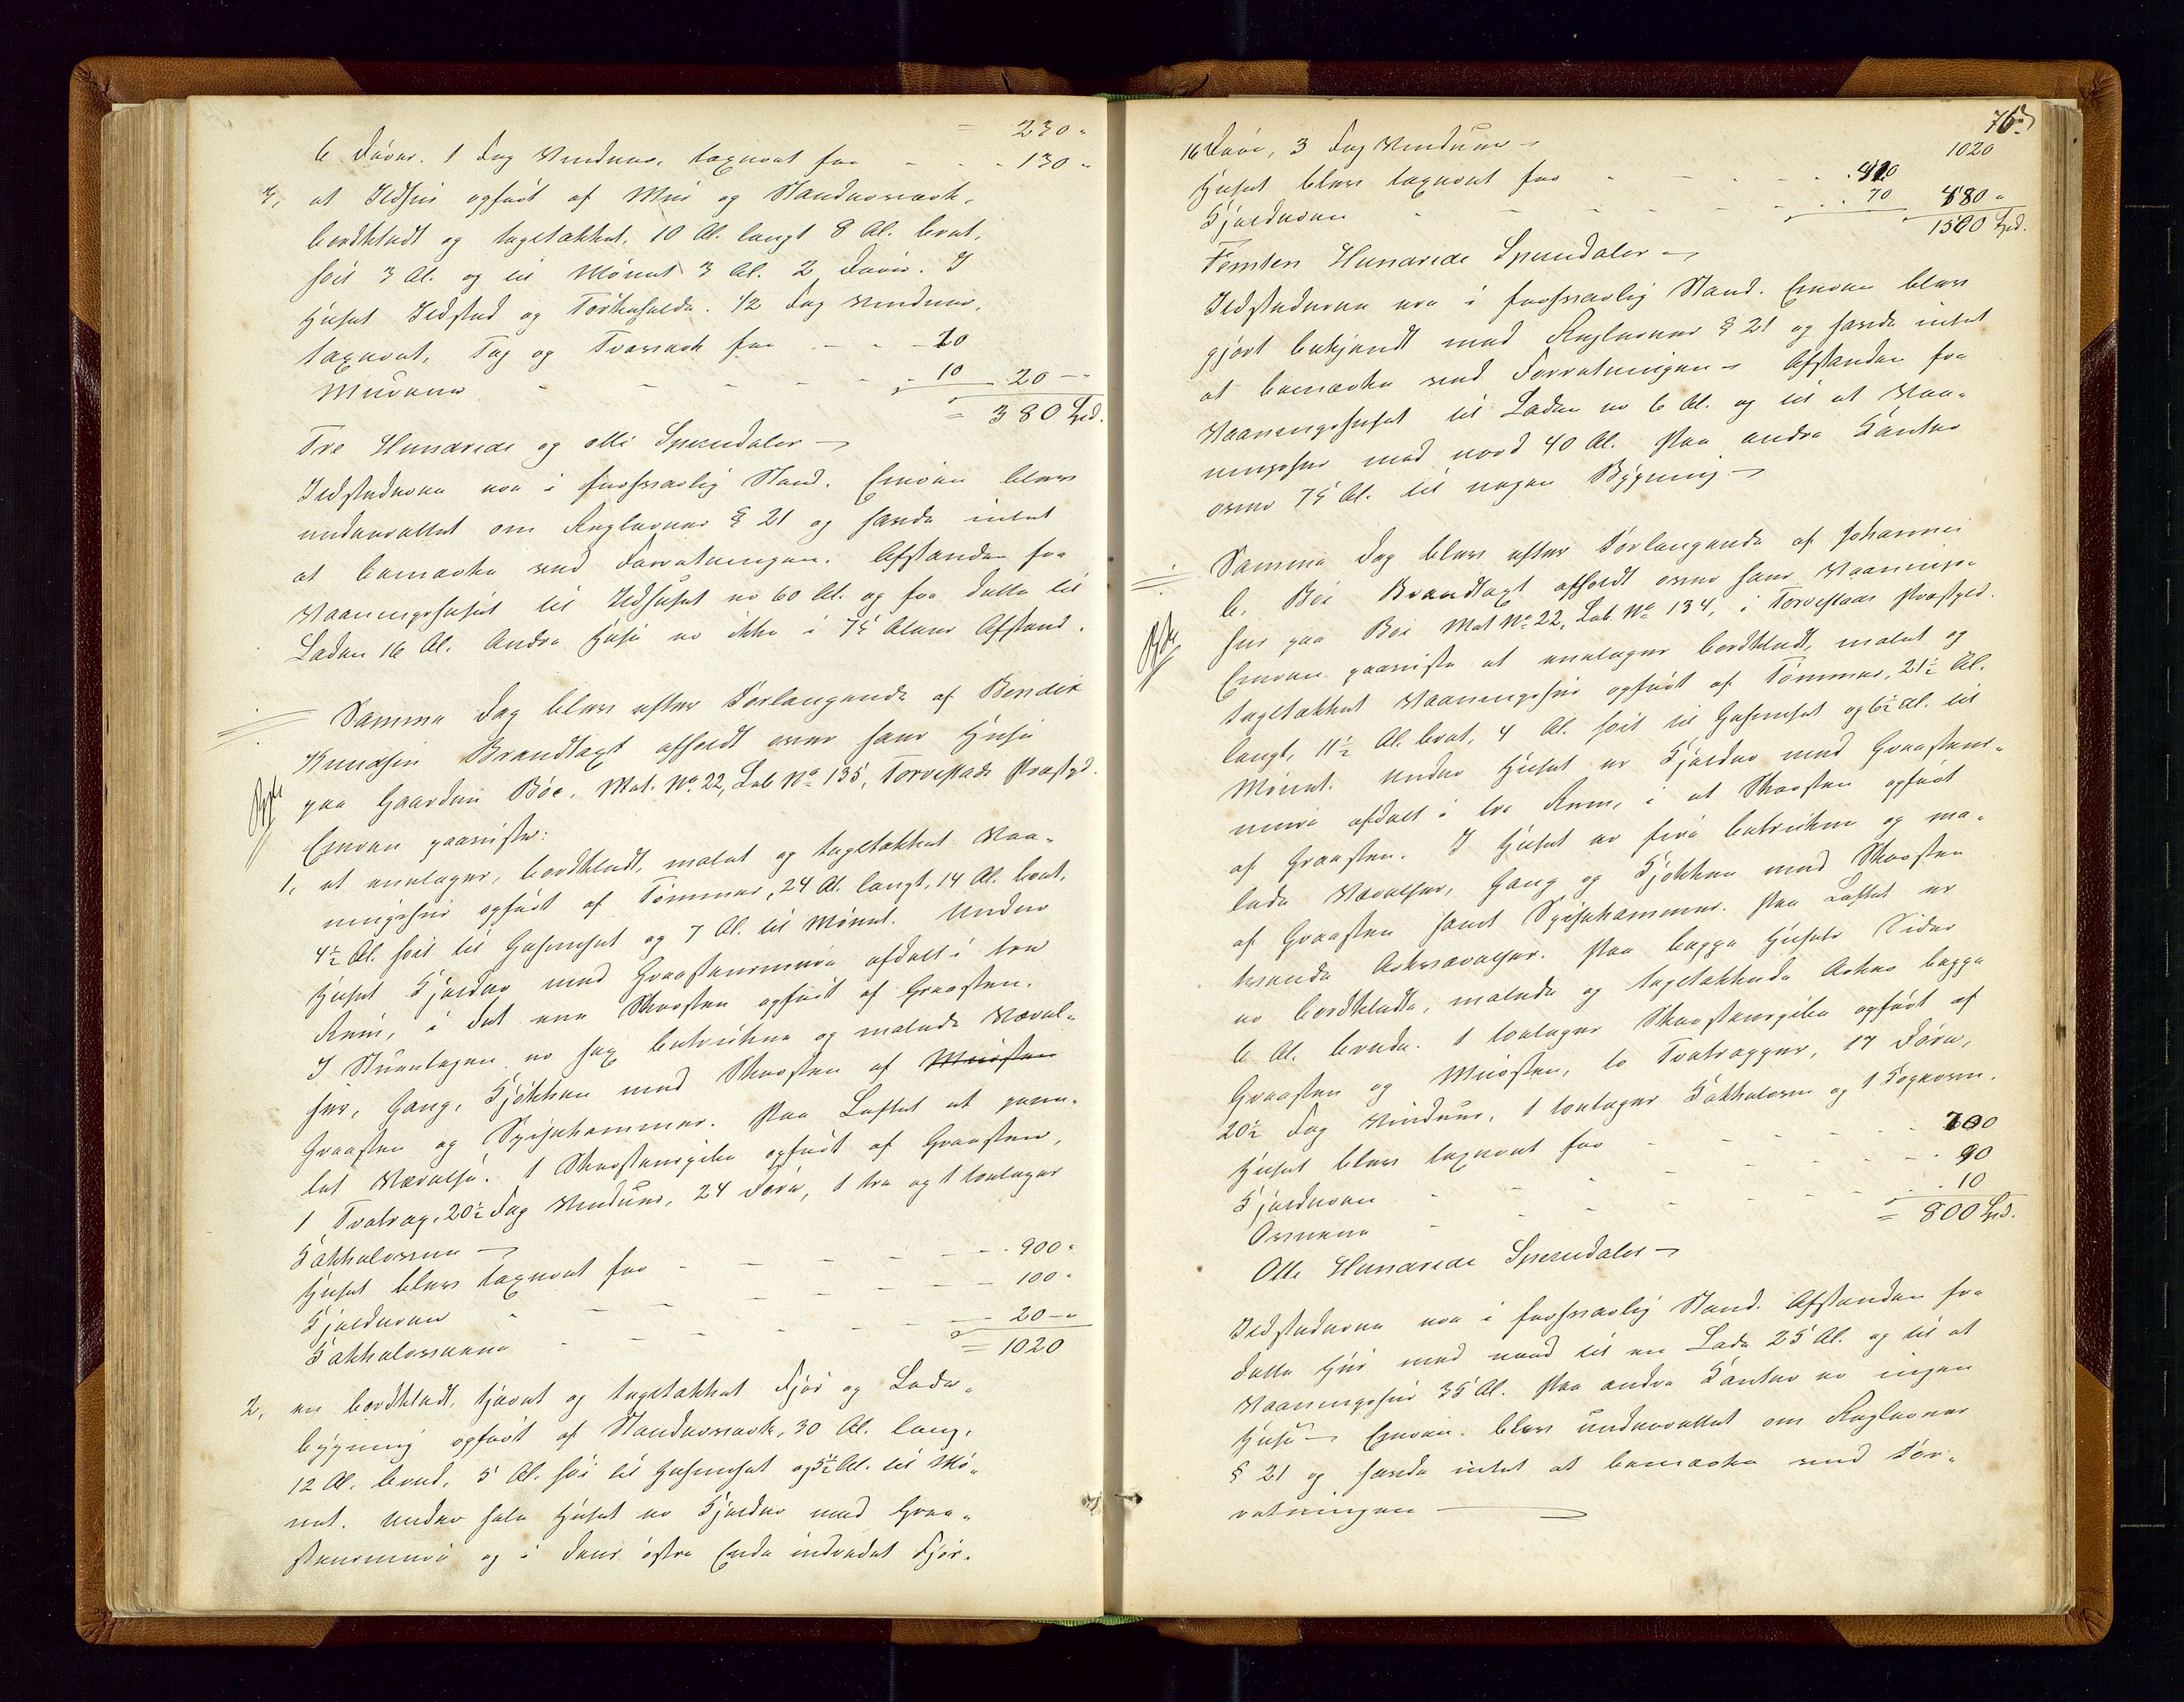 = 230 "
6 Döres. 1 Fag Vinduer, taxeret for - - - 130 "
3, et Ildhus opført af Mur og Standerværk,
bordklædt og tagstækket, 10 Al. langt 8 Al. bred,
høit 3 Al. og til Mønet 3 Al. 2 Døre. I
Huset Ildsted og Tørkehelde. 1/2 Fag Vinduer,
taxeret, Tag og Træværk for - - - 10
Murene - - - - 10 20 -"
= 380 Spd.
Tre Hundrede og otti Speciedaler
Ildstederne ere i forsvarlig Stand. Eieren blev
underrettet om Reglernes § 21 og havde intet
at bemærke ved Forretningen. Afstanden fra
Vaaningshuset til Ildhuset er 60 Al. og fra dette til
Laden 16 Al. Andre Huse er ikke i 75 Alens Afstand.
Samme Dag blev efter Forlangende af Bendix
Knudsen Brandtaxt afholdt over hans Huse
paa Gaarden Böe, Mat. No. 22, Løb No. 135, Torvestads Præstegd.
Eieren paaviste:
1, et enetages, bordklædt, malet og tagstækket Vaa-
ningshus opført af Tømmer, 24 Al. langt, 14 Al. bredt,
4½ Al. høit til Gesimset og 7 Al. til Mønet. Under
Huset Kjelder med Graastensmure afdelt i tre
Rum, i det ene Skorsten opført af Graasten.
I Stueetagen er sex betrukne og malede Værel-
ser, Gang, Kjøkken med Skorsten af Mursten
Graasten og Spisekammer. Paa Loftet et pane-
let Værelse. 1 Skorstenspibe opført af Graasten,
1 Trætrap, 20½ Fag Vinduer, 24 Døre, 1 tre og 1 toetages
Kakkelovne
Huset blev taxeret for - - - - 900 "
Kjelderen - - - - - 100 "
Kakkelovnene - - - - - 20 -"
= 1020
2, en bordklædt, tjæret og tagstækket Fjøs og Lade-
bygning opført af Standerværk, 30 Al. lang,
12 Al. bred, 5 Al. høi til Gesimset og 5½ Al. til Mø-
net. Under hele Huset er Kjelder med Graa-
stensmure og i dens østre Ende indredet Fjøs.
76
16 Døre, 3 Fag Vinduer 1020
Huset blev taxeret for - - - - 410
Kjelderen - - - - 70 480 "
1500 Spd.
Femten Hundrede Speciedaler
Ildstederne ere i forsvarlig Stand. Eieren blev
gjort bekjendt med Reglernes § 21 og havde intet
at bemærke ved Forretningen. Afstanden fra
Vaaningshuset til Laden er 6 Al. og til et Vaa-
ningshus mod nord 40 Al. Paa andre Kanter
over 75 Al. til nogen Bygning
Samme Dag blev efter Forlangende af Johannes
B. Böe Brandtaxt afholdt over hans Vaanings-
hus paa Böe Mat No. 22, Løb. No. 134, i Torvestads Præstgd.
Eieren paaviste et enetages bordklædt, malet og
tagstækket Vaaningshus opført af Tømmer, 21½ Al.
langt, 11½ Al. bredt, 4 Al. høit til Gesimset og 6½ Al. til
Mønet. Under Huset er Kjelder med Graastens-
mure afdelt i tre Rum, i et Skorsten opført
af Graasten. I Huset er fire betrukne og ma-
lede Værelser, Gang og Kjøkken med Skorsten
af Graasten samt Spisekammer. Paa Loftet er
trende Arkværelser. Paa begge Husets Sider
er bordklædte, malede og tagstækkede Arker begge
6 Al. brede. 1 toetages Skorstenspibe opført af
Graasten og Mursten, to Trætrapper, 17 Døre,
20½ Fag Vinduer, 1 toetages Kakkelovn og 1 Kogeovn.
Huset blev taxeret for - - - - 700
Kjelderen - - - - - 90
Ovnene - - - - - 10
= 800 Spd.
Otte Hundrede Speciedaler
Ildstederne ere i forsvarlig Stand. Afstanden fra
dette Hus mod nord til en Lade 25 Al. og til et
Vaaningshus 35 Al. Paa andre Kanter er ingen
Huse. Eieren blev underrettet om Reglernes
§ 21 og havde intet at bemærke ved For-
retningen